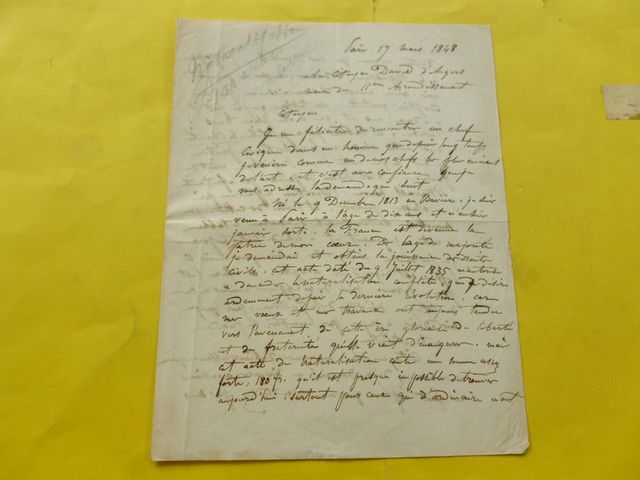 Paris 17 mars 1848
Au Citoyen David d'Angers
maire du 11eme Arrondissement
Citoyen
Je me félicite de rencontrer un chef
civique dans un homme que depuis long temps
je vénère comme un des chefs les plus éminent
de l'art et c'est avec confiance que je
vous adresse la demande qui suit
Né le 9 Décembre 1813 en Bavière, je suis
venu à Paris à l'âge de dix ans et n'en suis
jamais sorti, la France est devenue la
patrie de mon cœur. De l'âge de majorité
je demandai et obtins la jouissance des droits
civils, cet acte daté du 9 Juillet 1835 m'autorise
à demander la naturalisation complète, que je désire
ardemment depuis la dernière révolution, car
mes vœux et mes travaux ont toujours tendu
vers l'avènement de cette ère glorieuse de liberté
et de fraternité qu'elle vient d'inaugurer, mais
cet acte de Naturalisation coûte une somme assez
forte, 180 fr. qu'il est presque impossible de trouver
aujourd'hui, surtout pour ceux qui d'ordinaire n'ont